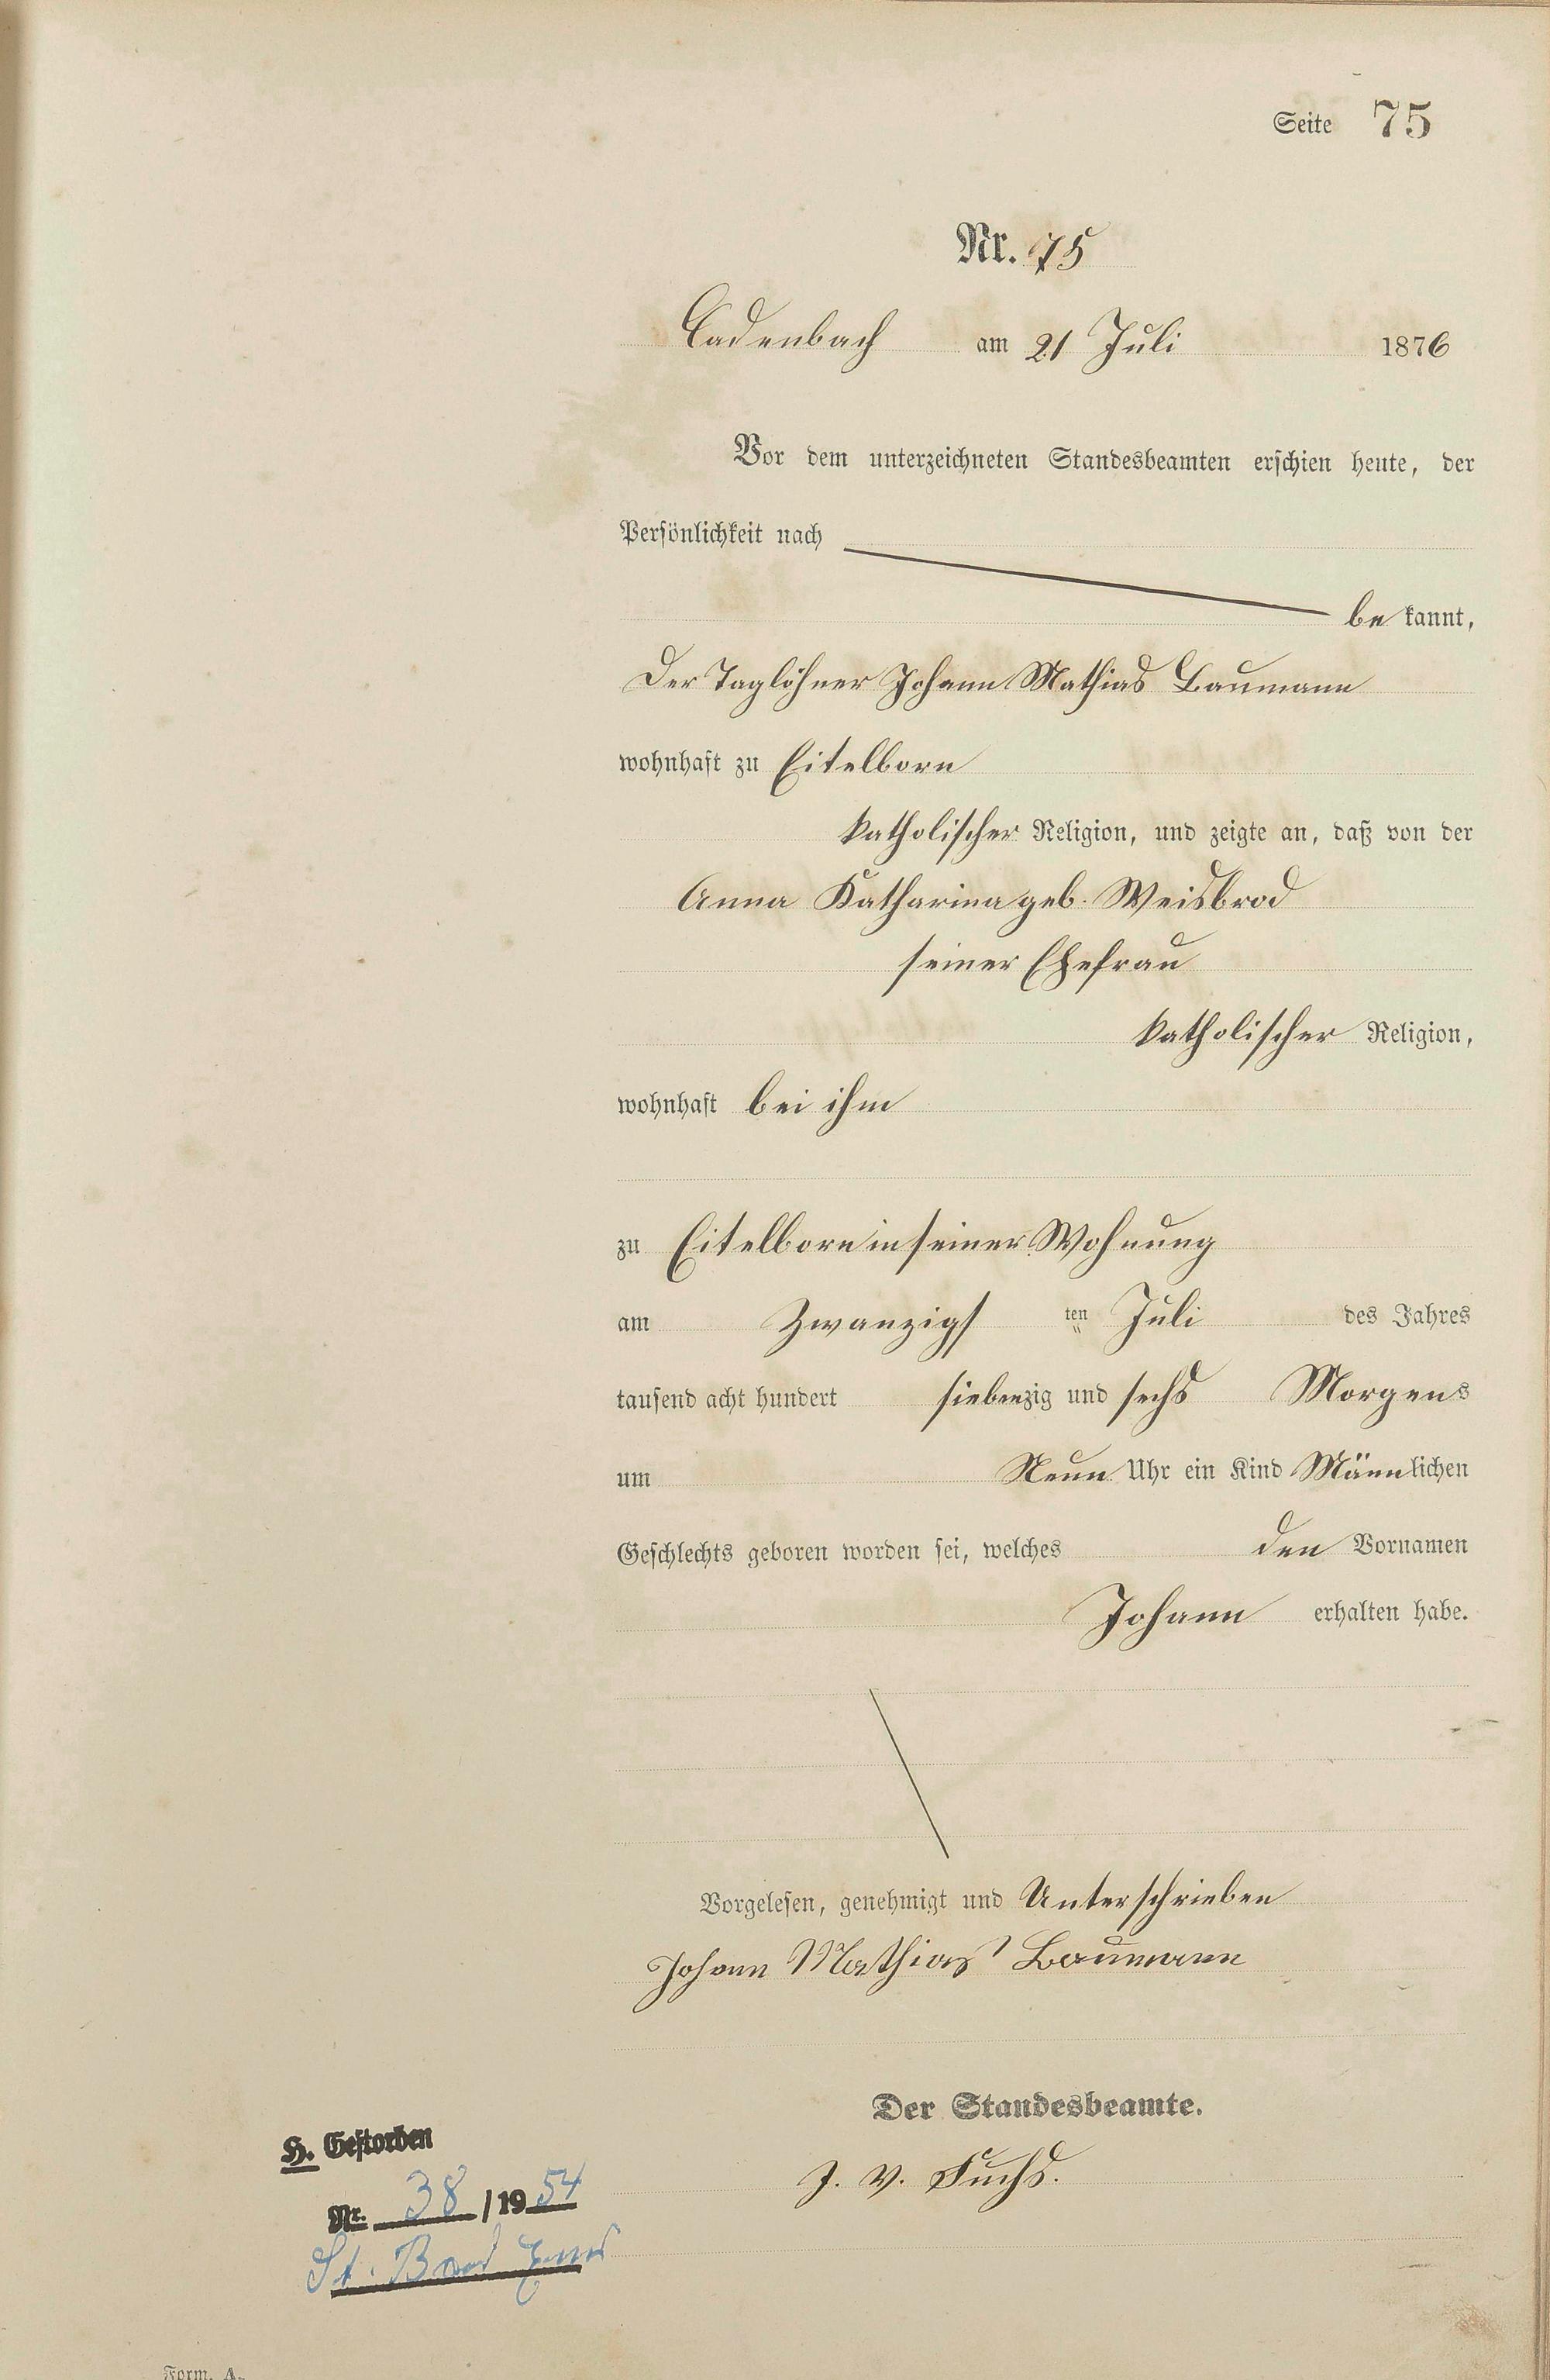 Seite 75
Nr. 75
Cadenbach am 21 Juli 1876
Vor dem unterzeichneten Standesbeamten erschien heute, der
Persönlichkeit nach
be kannt,
Der Taglöhner Johann Mathias Baumann
wohnhaft zu Eitelborn
katholischer Religion, und zeigte an, daß von der
Anna Katharina geb. Weisbrod
seiner Ehefrau
katholischer Religion,
wohnhaft bei ihm
zu Eitelborn in seiner Wohnung
am Zwanzigs ten Juli des Jahres
tausend acht hundert siebenzig und sechs Morgens
um Neun Uhr ein Kind Männlichen
Geschlechts geboren worden sei, welches den Vornamen
Johann erhalten habe.
Vorgelesen, genehmigt und Unterschrieben
Johann Mathias Baumann
Der Standesbeamte.
J. V. Fuchs.
H. Gestorben
Nr. 38 / 19 54
St. Bad Ems
Form. A.